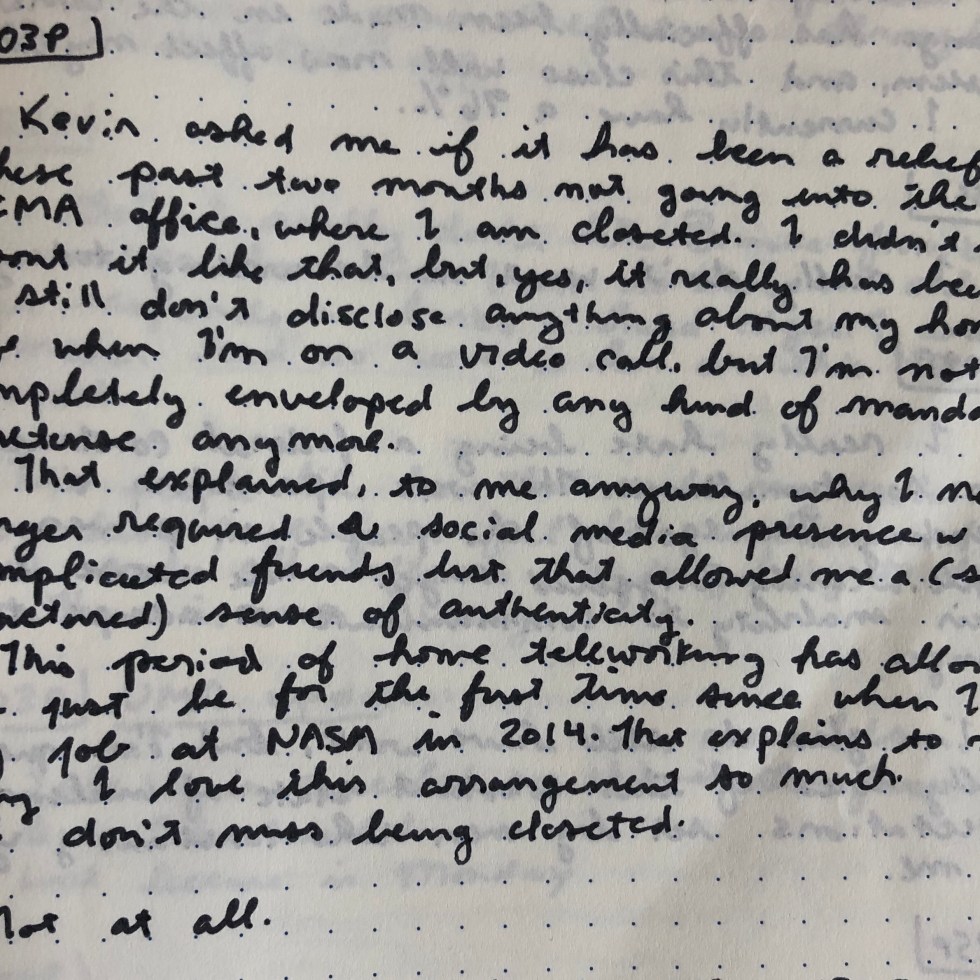 03P
Kevin asked me if it has been a relief
hese past two months not going into the
EMA office, where I am closeted. I didn't
ont it like that, but, yes, it really has bee
still don't disclose anything about my hom
e when I'm on a video call, but I'm not
mpletely enveloped by any kind of manda
retense anymore.
That explained, to me anyway, why I no
nger required a social media presence w
mplicated friends list that allowed me a (s
actured) sense of authenticity.
This period of home teleworking has allo
just be for the first time since when I
job at NASA in 2014. That explains to
I love this arrangement so much.
don't miss being closeted.
Not at all.